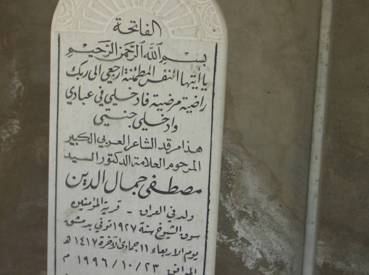 الفاتحة
بسم الله الرحمن الرحيم
يا أيتها النفس المطمئنة ارجعي الى ربك
راضية مرضية فادخلي في عبادي
وادخلي جنتي
هذا مرقد الشاعر العربي الكبير
المرحوم العلامة الدكتور السيد
مصطفى جمال الدين
ولد في العراق - قرية المؤمنين
سوق الشيوخ سنة ١٩٢٧ توفي بدمشق
يوم الاربعاء ١١ جمادى الآخرة ١٤١٧ هـ
الموافق ٢٣ / ١٠ / ١٩٩٦ م